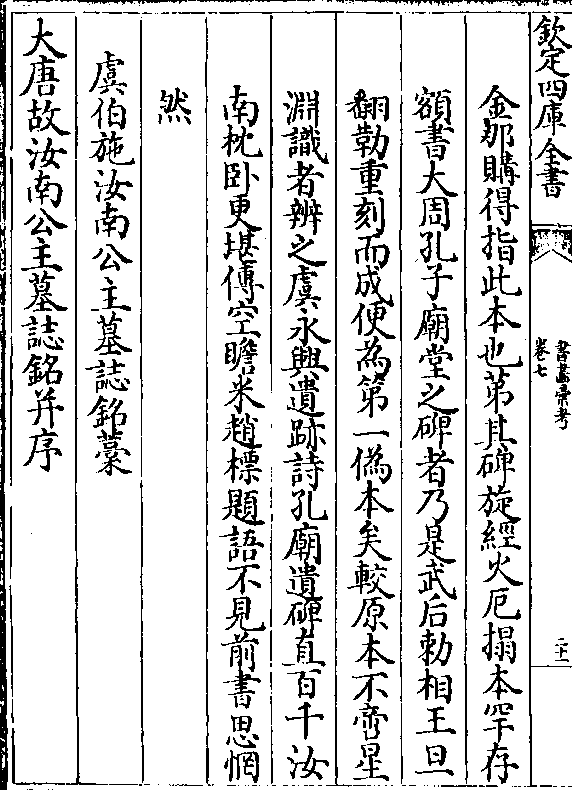 欽定四庫全書
書畫彙考
卷七
二十二
金那購得指此本也苐其碑旋經火厄搨本罕存
額書大周孔子廟堂之碑者乃是武后勅相王旦
翻勒重刻而成便為第一僞本矣較原本不啻星
淵識者辨之虞永興遺跡詩孔廟遺碑直百千汝
南枕卧更堪傳空瞻米趙標題語不見前書思惘
然
虞伯施汝南公主墓誌銘藁
大唐故汝南公主墓誌銘并序